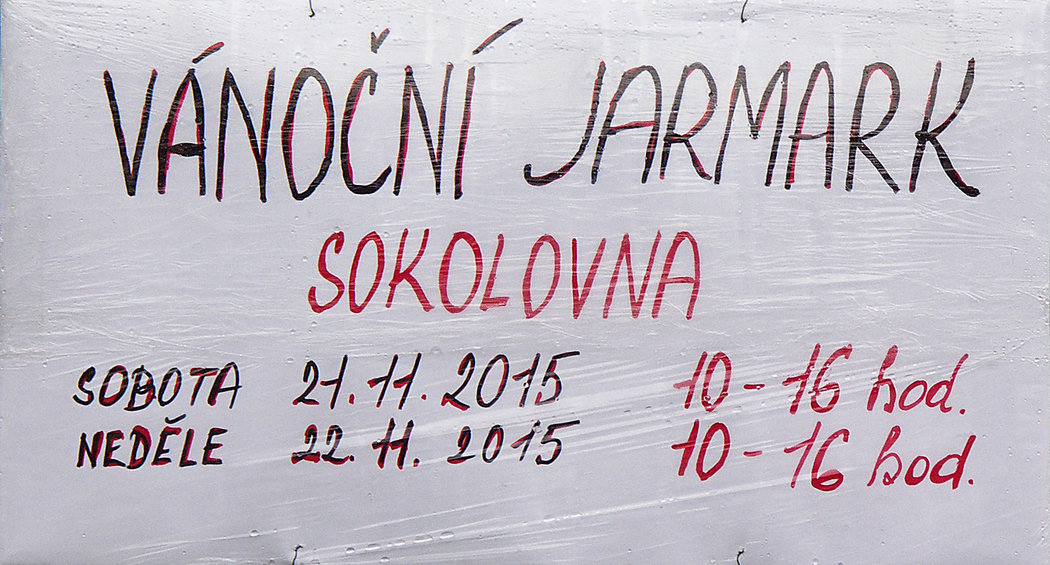 VÁNOČNÍ JARMARK
SOKOLOVNA
SOBOTA 21.11.2015 10-16 hod.
NEDĚLE 22.11.2015 10-16 hod.